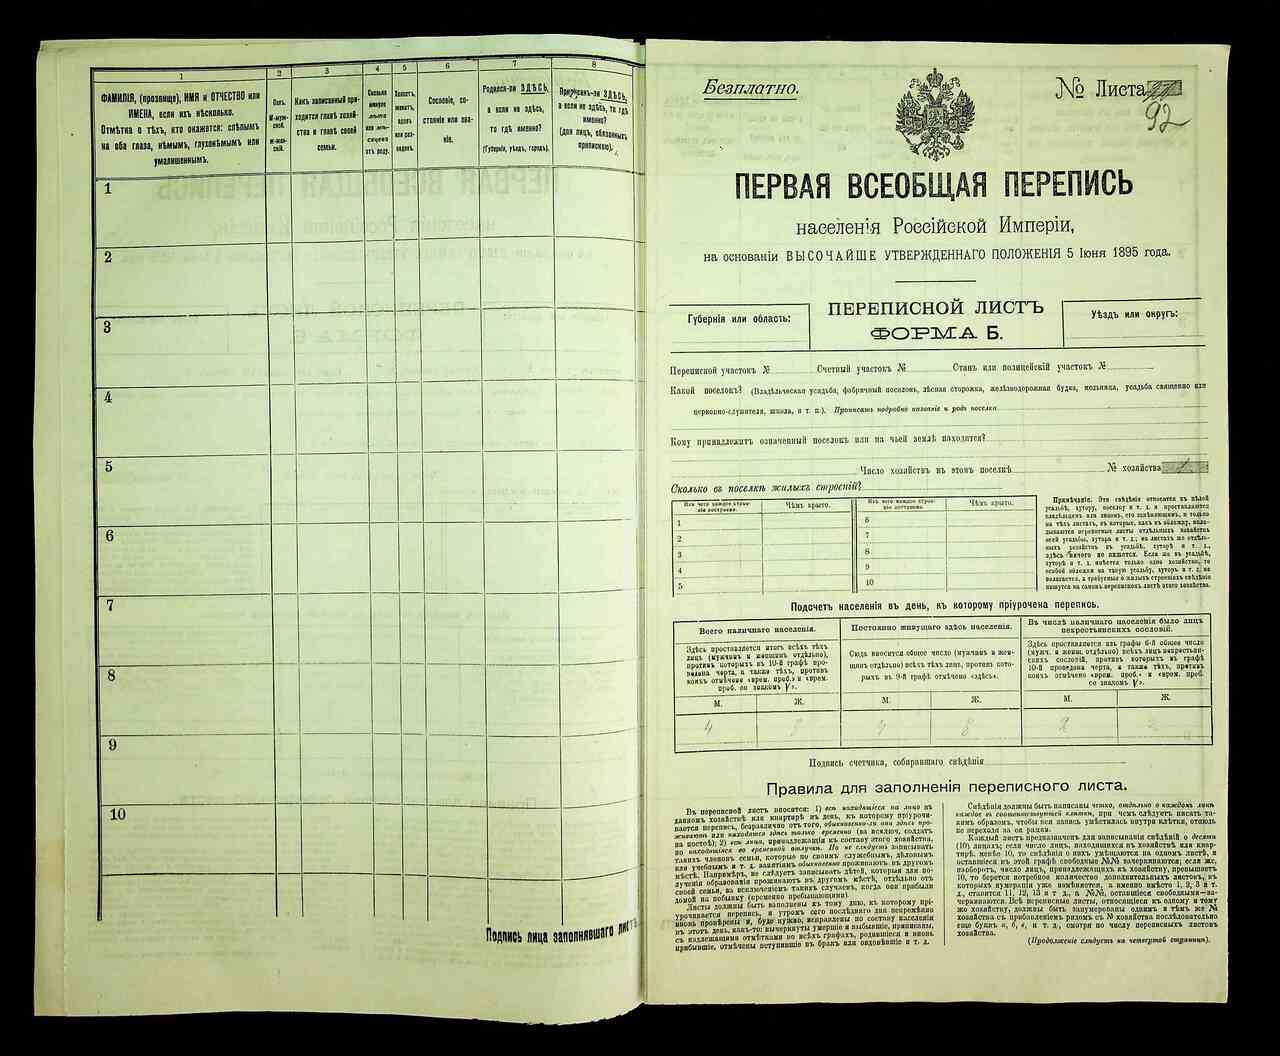 1
ФАМИЛІЯ, (прозвище), ИМЯ и ОТЧЕСТВО или
ИМЕНА, если ихъ нѣсколько.
Отмѣтка о тѣхъ, кто окажется: слѣпымъ
на оба глаза, нѣмымъ, глухонѣмымъ или
умалишеннымъ.
2
Полъ.
М-муж-
ской.
Ж-жен-
скій.
3
Какъ записанный при-
ходится главѣ хозяй-
ства и главѣ своей
семьи.
4
Сколько
минуло
лѣтъ
или мѣ-
сяцевъ
отъ роду.
5
Холостъ,
женатъ,
вдовъ
или раз-
веденъ.
6
Сословіе, со-
стояніе или зва-
ніе.
7
Родился-ли ЗДѢСЬ,
а если не здѣсь,
то гдѣ именно?
(Губернія, уѣздъ, городъ).
8
Приписанъ-ли ЗДѢСЬ,
а если не здѣсь, то гдѣ
именно?
(для лицъ, обязанныхъ
припискою).
1
2
3
4
5
6
7
8
9
10
Подпись лица заполнявшаго листъ
Безплатно.
№ Листа
92
ПЕРВАЯ ВСЕОБЩАЯ ПЕРЕПИСЬ
населенія Россійской Имперіи,
на основаніи ВЫСОЧАЙШЕ УТВЕРЖДЕННАГО ПОЛОЖЕНІЯ 5 Іюня 1895 года.
Губернія или область:
ПЕРЕПИСНОЙ ЛИСТЪ
ФОРМА Б.
Уѣздъ или округъ:
Переписной участокъ № Счетный участокъ № Станъ или полицейскій участокъ №
Какой поселокъ? (Владѣльческая усадьба, фабричный поселокъ, лѣсная сторожка, желѣзнодорожная будка, мельница, усадьба священно или
церковно-служителя, школа, и т. п.). Прописать подробно названіе и родъ поселка
Кому принадлежитъ означенный поселокъ или на чьей землѣ находится?
Число хозяйствъ въ этомъ поселкѣ № хозяйства
Сколько въ поселкѣ жилыхъ строеній?
Изъ чего каждое строе-
ніе построено.
Чѣмъ крыто.
Изъ чего каждое строе-
ніе построено.
Чѣмъ крыто.
1
2
3
4
5
6
7
8
9
10
Примѣчаніе. Эти свѣдѣнія относятся къ цѣлой
усадьбѣ, хутору, поселку и т. д. и проставляются
владѣльцемъ или лицомъ, его замѣняющимъ, и только
на тѣхъ листахъ, въ которые, какъ въ обложку, вкла-
дываются переписные листы отдѣльныхъ хозяйствъ
всей усадьбы, хутора и т. д.; на листахъ же отдѣль-
ныхъ хозяйствъ въ усадьбѣ, хуторѣ и т. д.,
здѣсь ничего не пишется. Если же въ усадьбѣ,
хуторѣ и т. д. имѣется только одно хозяйство, то
особой обложки на такую усадьбу, хуторъ и т. д. не
полагается, а требуемыя о жилыхъ строеніяхъ свѣдѣнія
пишутся на самомъ переписномъ листѣ этого хозяйства.
Подсчетъ населенія въ день, къ которому пріурочена перепись.
Всего наличнаго населенія.
Здѣсь проставляется итогъ всѣхъ тѣхъ
лицъ (мужчинъ и женщинъ отдѣльно),
противъ которыхъ въ 10-й графѣ про-
ведена черта, а также тѣхъ, противъ
коихъ отмѣчено «врем. преб.» и «врем.
преб. со знакомъ V».
Постоянно живущаго здѣсь населенія.
Сюда вносится общее число (мужчинъ и жен-
щинъ отдѣльно) всѣхъ тѣхъ лицъ, противъ кото-
рыхъ въ 9-й графѣ отмѣчено «здѣсь».
Въ числѣ наличнаго населенія было лицъ
некрестьянскихъ сословій.
Здѣсь проставляется изъ графы 6-й общее число
(мужч. и женщ. отдѣльно) всѣхъ лицъ некрестьян-
скихъ сословій, противъ которыхъ въ графѣ
10-й проведена черта, а также тѣхъ, противъ
коихъ отмѣчено «врем. преб.» и «врем. преб.
со знакомъ V».
М. Ж. М. Ж. М. Ж.
4
Подпись счетчика, собиравшаго свѣдѣнія
Правила для заполненія переписного листа.
Въ переписной листъ вносятся: 1) всѣ находящіеся на лицо въ
данномъ хозяйствѣ или квартирѣ въ день, къ которому пріурочи-
вается перепись, безразлично отъ того, обыкновенно-ли они здѣсь про-
живаютъ или находятся здѣсь только временно (за исключ. солдатъ
на постоѣ); 2) всѣ лица, принадлежащія къ составу этого хозяйства,
но находящіяся во временной отлучкѣ. Но не слѣдуетъ записывать
такихъ членовъ семьи, которые по своимъ служебнымъ, дѣловымъ
или учебнымъ и т. д. занятіямъ обыкновенно проживаютъ въ другомъ
мѣстѣ. Напримѣръ, не слѣдуетъ записывать дѣтей, которыя для по-
лученія образованія проживаютъ въ другомъ мѣстѣ, отдѣльно отъ
своей семьи, за исключеніемъ такихъ случаевъ, когда они прибыли
домой на побывку (временно пребывающими).
Листы должны быть заполнены къ тому дню, къ которому прі-
урочивается перепись, и утромъ сего послѣдняго дня непремѣнно
вновь провѣрены и, буде нужно, исправлены по составу населенія
въ этотъ день, какъ-то: вычеркнуты умершіе и выбывшіе, приписаны,
съ надлежащими отмѣтками во всѣхъ графахъ, родившіеся и вновь
прибывшіе, отмѣчены вступившіе въ бракъ или овдовѣвшіе и т. д.
Свѣдѣнія должны быть написаны четко, отдѣльно о каждомъ лицѣ
каждое въ соотвѣтствующей клѣткѣ, при чемъ слѣдуетъ писать та-
кимъ образомъ, чтобы вся запись умѣстилась внутри клѣтки, отнюдь
не переходя за ея рамки.
Каждый листъ предназначенъ для записыванія свѣдѣній о десяти
(10) лицахъ; если число лицъ, находящихся въ хозяйствѣ или квар-
тирѣ, менѣе 10, то свѣдѣнія о нихъ умѣщаются на одномъ листѣ, а
оставшіеся въ этой графѣ свободные №№ вычеркиваются; если же,
наоборотъ, число лицъ, принадлежащихъ къ хозяйству, превышаетъ
10, то берется потребное количество дополнительныхъ листовъ, въ
которыхъ нумерація уже измѣняется, а именно вмѣсто 1, 2, 3 и т.
д., ставится 11, 12, 13 и т. д., а №№, оставшіеся свободными—за-
черкиваются. Всѣ переписные листы, относящіеся къ одному и тому
же хозяйству, должны быть занумерованы однимъ и тѣмъ же №
хозяйства съ прибавленіемъ рядомъ съ № хозяйства послѣдовательно
еще буквъ а, б, в, и т. д., смотря по числу переписныхъ листовъ
хозяйства.
(Продолженіе слѣдуетъ на четвертой страницѣ).